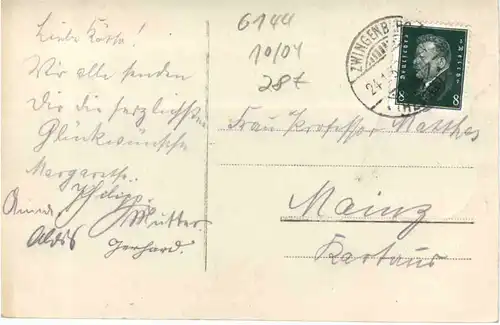 Liebe Käthe!
Wir alle senden
Dir die herzlichsten
Glückwünsche
Margarethe.
Philipp.
Mutter.
Gerhard.
6144
10/04
28t
ZWINGENBERG
24.
Deutsches Reich
8 8
Frau Professor Matthes
Mainz
Kartaus